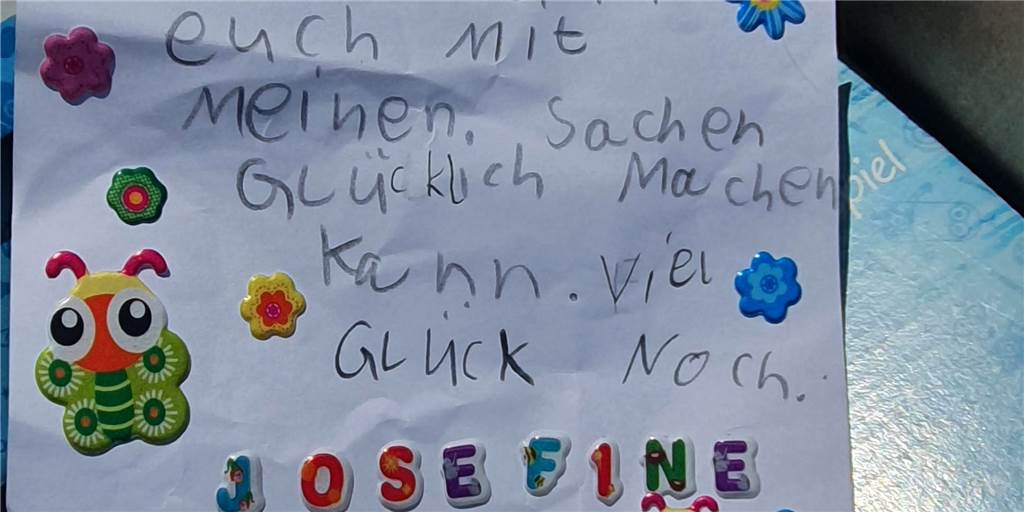 euch mit
Meinen. Sachen
GLücklich Machen
Kann. Viel
GLück Noch.
JOSEFINE
piel